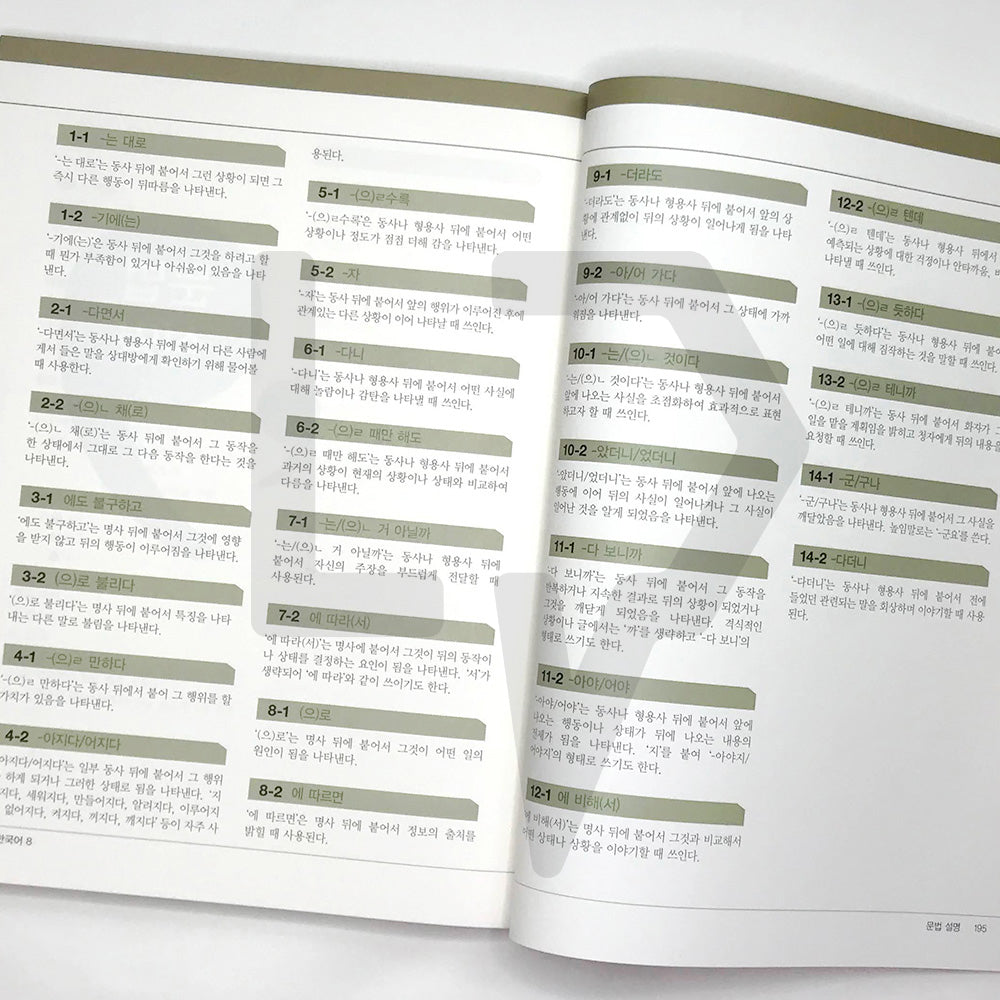 1-1 -는 대로
'-는 대로'는 동사 뒤에 붙어서 그런 상황이 되면 그
즉시 다른 행동이 뒤따름을 나타낸다.
1-2 -기에(는)
'-기에(는)'은 동사 뒤에 붙어서 그것을 하려고 할
때 뭔가 부족함이 있거나 아쉬움이 있음을 나타
낸다.
2-1 -다면서
'-다면서'는 동사나 형용사 뒤에 붙어서 다른 사람에
게서 들은 말을 상대방에게 확인하기 위해 물어볼
때 사용한다.
2-2 -(으)ㄴ 채(로)
'-(으)ㄴ 채(로)'는 동사 뒤에 붙어서 그 동작을
한 상태에서 그대로 그 다음 동작을 한다는 것을
나타낸다.
3-1 에도 불구하고
'에도 불구하고'는 명사 뒤에 붙어서 그것에 영향
을 받지 않고 뒤의 행동이 이루어짐을 나타낸다.
3-2 (으)로 불리다
'(으)로 불리다'는 명사 뒤에 붙어서 특징을 나타
내는 다른 말로 불림을 나타낸다.
4-1 -(으)ㄹ 만하다
'-(으)ㄹ 만하다'는 동사 뒤에서 붙어 그 행위를 할
가치가 있음을 나타낸다.
4-2 -아지다/어지다
아지다/어지다'는 일부 동사 뒤에 붙어서 그 행위
하게 되거나 그러한 상태로 됨을 나타낸다. '지
지다, 세워지다, 만들어지다, 알려지다, 이루어지
없어지다, 켜지다, 꺼지다, 깨지다' 등이 자주 사
한국어 8
용된다.
5-1 -(으)ㄹ수록
'-(으)ㄹ수록'은 동사나 형용사 뒤에 붙어서 어떤
상황이나 정도가 점점 더해 감을 나타낸다.
5-2 -자
'-자'는 동사 뒤에 붙어서 앞의 행위가 이루어진 후에
관계있는 다른 상황이 이어 나타날 때 쓰인다.
6-1 -다니
'-다니'는 동사나 형용사 뒤에 붙어서 어떤 사실에
대해 놀람이나 감탄을 나타낼 때 쓰인다.
6-2 -(으)ㄹ 때만 해도
'-(으)ㄹ 때만 해도'는 동사나 형용사 뒤에 붙어서
과거의 상황이 현재의 상황이나 상태와 비교하여
다름을 나타낸다.
7-1 -는/(으)ㄴ 거 아닐까
'-는/(으)ㄴ 거 아닐까'는 동사나 형용사 뒤에
붙어서 자신의 주장을 부드럽게 전달할 때
사용된다.
7-2 에 따라(서)
'에 따라(서)'는 명사에 붙어서 그것이 뒤의 동작이
나 상태를 결정하는 요인이 됨을 나타낸다. '서'가
생략되어 '에 따라'와 같이 쓰이기도 한다.
8-1 (으)로
'(으)로'는 명사 뒤에 붙어서 그것이 어떤 일의
원인이 됨을 나타낸다.
8-2 에 따르면
'에 따르면'은 명사 뒤에 붙어서 정보의 출처를
밝힐 때 사용된다.
9-1 -더라도
'-더라도'는 동사나 형용사 뒤에 붙어서 앞의 상
황에 관계없이 뒤의 상황이 일어나게 됨을 나타
낸다.
9-2 -아/어 가다
'-아/어 가다'는 동사 뒤에 붙어서 그 상태에 가까
워짐을 나타낸다.
10-1 -는/(으)ㄴ 것이다
'-는/(으)ㄴ 것이다'는 동사나 형용사 뒤에 붙어서
앞에 나오는 사실을 초점화하여 효과적으로 표현
하고자 할 때 쓰인다.
10-2 -았더니/었더니
'-았더니/었더니'는 동사 뒤에 붙어서 앞에 나오는
행동에 이어 뒤의 사실이 일어나거나 그 사실이
일어난 것을 알게 되었음을 나타낸다.
11-1 -다 보니까
'-다 보니까'는 동사 뒤에 붙어서 그 동작을
반복하거나 지속한 결과로 뒤의 상황이 되었거나
그것을 깨닫게 되었음을 나타낸다. 격식적인
상황이나 글에서는 '까'를 생략하고 '-다 보니'의
형태로 쓰기도 한다.
11-2 -아야/어야
'-아야/어야'는 동사나 형용사 뒤에 붙어서 앞에
나오는 행동이나 상태가 뒤에 나오는 내용의
전제가 됨을 나타낸다. '지'를 붙여 '-아야지/
어야지'의 형태로 쓰기도 한다.
12-1 에 비해(서)
'에 비해(서)'는 명사 뒤에 붙어서 그것과 비교해서
어떤 상태나 상황을 이야기할 때 쓰인다.
12-2 -(으)ㄹ 텐데
'-(으)ㄹ 텐데'는 동사나 형용사 뒤에서
예측되는 상황에 대한 걱정이나 안타까움, 바
나타낼 때 쓰인다.
13-1 -(으)ㄹ 듯하다
'-(으)ㄹ 듯하다'는 동사나 형용사 뒤에 붙어
어떤 일에 대해 짐작하는 것을 말할 때 쓰인다.
13-2 -(으)ㄹ 테니까
'-(으)ㄹ 테니까'는 동사 뒤에 붙어서 화자가 그
일을 맡을 계획임을 밝히고 청자에게 뒤의 내용을
요청할 때 쓰인다.
14-1 -군/구나
'-군/구나'는 동사나 형용사 뒤에 붙어서 그 사실을
깨달았음을 나타낸다. 높임말로는 '-군요'를 쓴다.
14-2 -다더니
'-다더니'는 동사나 형용사 뒤에 붙어서 전에
들었던 관련되는 말을 회상하며 이야기할 때 사용
된다.
문법 설명 195